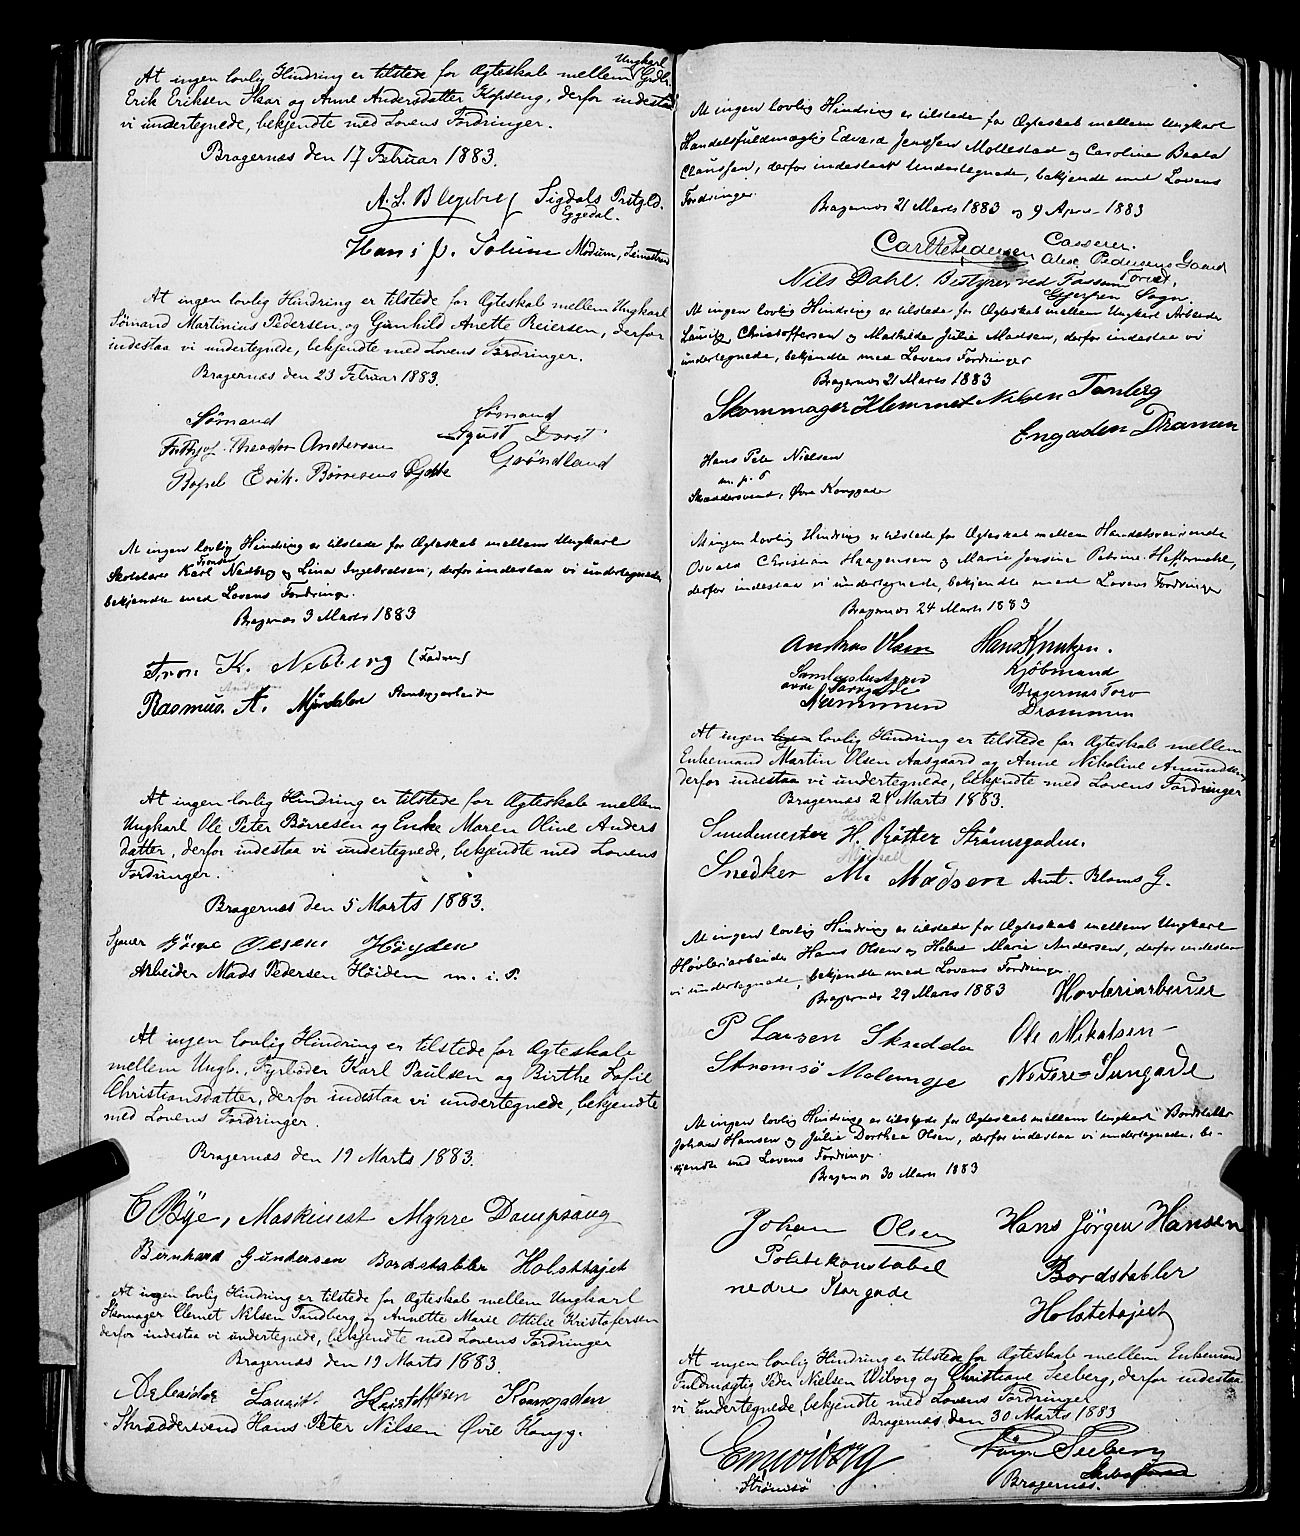 At ingen lovlig Hindring er tilstede for Ægteskab mellem Ungkarl Grdbr.
Erik Eriksen Skar og Anne Andersdatter Kopseng, derfor indestaa
vi undertegnede, bekjendte med Lovens Fordringer.
Bragernæs den 17 Februar 1883.
A. S. Blegeberg Sigdals Prstgld.
Eggedal.
Hans J. Solum Modum,
At ingen lovlig Hindring er tilstede for Ægteskab mellem Ungkarl
Sømand Martinius Pedersen, og Gunhild Anette Reiersen, derfor
indestaa vi undertegnede, bekjendte med Lovens Fordringer.
Bragernæs den 23 Februar 1883.
Sømand
Frithjof Theodor Andersen
Erik Børresens
Sømand
August
Grøndland
At ingen lovlig Hindring er tilstede for Ægteskab mellem Ungkarl
Skolelærer Karl Nedberg og Lina Ingebretsen, derfor indestaa vi undertegnede,
bekjendte med Lovens Fordringer.
Bragernæs 3 Marts 1883
Tron K. Neberg (Faderen)
Rasmus A. Mjøndalen
At ingen lovlig Hindring er tilstede for Ægteskab mellem
Ungkarl Ole Peter Børresen og Enke Maren Oline Anders
datter, derfor indestaa vi undertegnede, bekjendte med Lovens
Fordringer.
Bragernæs den 5 Marts 1883.
Sjouer Olsens Høyden
Arbeider Mads Pedersen Høiden m. i. P.
At ingen lovlig Hindring er tilstede for Ægteskab
mellem Ungk., Fyrbøder Karl Paulsen og Birthe Sofie
Christiansdatter, derfor indestaa vi undertegnede, bekjendte
med Lovens Fordringer.
Bragernæs den 19 Marts 1883.
C Bye, Maskinest Myhre Dampsaug
Bernhard Gundersen Bordstabler Holsthøjet
At ingen lovlig Hindring er tilstede for Ægteskab mellem Ungkarl
Skomager Clemet Nilsen Tandberg og Annette Marie Ottilie Kristofersen
derfor indestaa vi undertegnede, bekjendte med Lovens Fordringer
Bragernæs den 19 Marts 1883.
Arbeider Lauritz Kristoffersen Konggaden
Skræddersvend Hans Peter Nilsen Øvre Kongg.
At ingen lovlig Hindring er tilstede for Ægteskab mellem Ungkarl
Handelsfuldmægtig Edvard Jenssen Mollestad og Caroline Beata
Claussen, derfor indestaar Undertegnede, bekjendte med Lovens
Fordringer.
Bragernæs 21 Marts 1883 og 9 April 1883
Carl Pedersen Casserer.
Pedersens Gaard
Nils Dahl. Bestyrer ved Fossum
Sogn.
At ingen lovlig Hindring er tilstede for Ægteskab mellem Ungkarl Arbeider
Lauritz Christoffersen og Mathilde Julie Madsen, derfor indestaa vi
undertegnede, bekjendte med Lovens Fordringer
Bragernæs 21 Marts 1883
Skommager Klemmet Nilsen Tanberg
Engaden Dramen
Hans Peter Nielsen
m. p. P
Skræddersvend, Øvre Konggade
At ingen lovlig Hindring er tilstede for Ægteskab mellem Handelsreisende
Osvald Christian Haagensen og Marie Jensine Petrine Heffermehl,
derfor indestaa vi undertegnede, bekjendte med Lovens Fordringer
Bragernæs 24 Marts 1883
Andreas Olsen
Drammen
Hans Knutzen.
Kjøbmand
Bragernæs Torv
Drammen
At ingen lovlig Hindring er tilstede for Ægteskab mellem
Enkemand Martin Olsen Aasgaard og Anne Nikoline Amundsen
derfor indestaa vi undertegnede, bekjendte med Lovens Fordringer
Bragernæs 28 Marts 1883.
Henrik
H. Røtter Strømsgaden.
Snedker M. Madsen Amt. Bloms G.
At ingen lovlig Hindring er tilstede for Ægteskab mellem Ungkarl
Høvleriarbeider Hans Olsen og Helene Marie Andersen, derfor indestaa
vi undertegnede, bekjendte med Lovens Fordringer.
Bragernæs 29 Marts 1883 Hovleriarbeider
P Larsen Skredder Ole Nikolsen
Stromsø
At ingen lovlig Hindring er tilstede for Ægteskab mellem Ungkarl Bordstabler
Johan Hansen og Julie Dorthea Olsen, derfor indestaa vi undertegnede, be-
kjendte med Lovens Fordringer.
Bragernæs 30 Marts 1883
Johan Olsen
Politikonstabel
nedre Storgade
Hans Jörgen Hansen
Bordstabler
Holstehøjet
At ingen lovlig Hindring er tilstede for Ægteskab mellem Enkemand
Fuldmægtig Peder Nielsen Wiborg og Christiane Seeberg, derfor indestaa
vi undertegnede, bekjendte med Lovens Fordringer
Bragernæs den 30 Marts 1883
Em Wiborg
Strømsø
Jörgen Seeberg
Bragernæs.